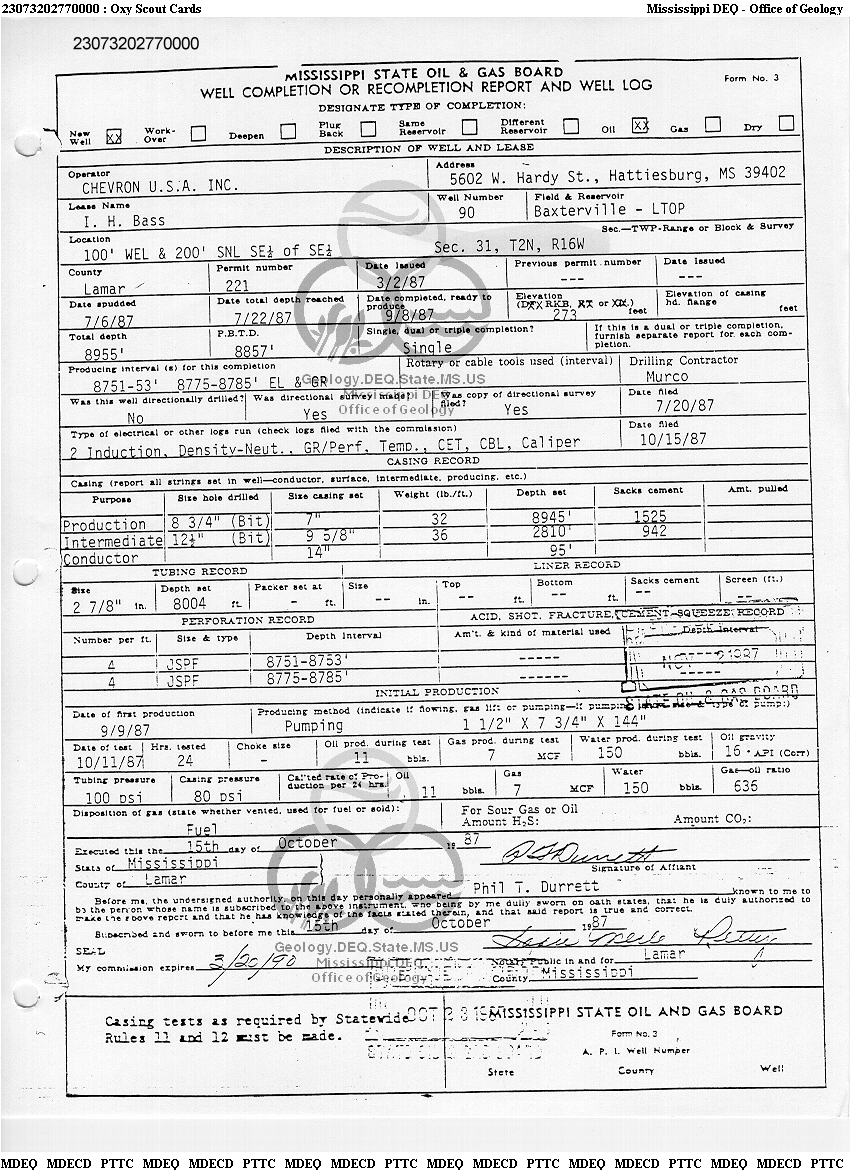 23073202770000 : Oxy Scout Cards Mississippi DEQ - Office of Geology
23073202770000
MISSISSIPPI STATE OIL & GAS BOARD
WELL COMPLETION OR RECOMPLETION REPORT AND WELL LOG Form No. 3
DESIGNATE TYPE OF COMPLETION:
New Well XX Work-Over Deepen Plug Back Same Reservoir Different Reservoir Oil XX Gas Dry
DESCRIPTION OF WELL AND LEASE
Operator Address
CHEVRON U.S.A. INC. 5602 W. Hardy St., Hattiesburg, MS 39402
Lease Name Well Number Field & Reservoir
I. H. Bass 90 Baxterville - LTOP
Location Sec.—TWP-Range or Block & Survey
100' WEL & 200' SNL SE¼ of SE¼ Sec. 31, T2N, R16W
County Permit number Date Issued Previous permit number Date Issued
Lamar 221 3/2/87 --- ---
Date spudded Date total depth reached Date completed, ready to produce Elevation (DXX RKB, RT or XX.) feet Elevation of casing hd. flange feet
7/6/87 7/22/87 9/8/87 273
Total depth P.B.T.D. Single, dual or triple completion? If this is a dual or triple completion, furnish separate report for each completion.
8955' 8857' Single
Producing interval (s) for this completion Rotary or cable tools used (interval) Drilling Contractor
8751-53' 8775-8785' EL & GR Murco
Was this well directionally drilled? Was directional survey made? Was copy of directional survey filed? Date filed
No Yes Yes 7/20/87
Type of electrical or other logs run (check logs filed with the commission) Date filed
2 Induction, Density-Neut., GR/Perf, Temp., CET, CBL, Caliper 10/15/87
CASING RECORD
Casing (report all strings set in well—conductor, surface, intermediate, producing, etc.)
Purpose Size hole drilled Size casing set Weight (lb./ft.) Depth set Sacks cement Amt. pulled
Production 8 3/4" (Bit) 7" 32 8945' 1525
Intermediate 12¼" (Bit) 9 5/8" 36 2810' 942
Conductor 14" 95'
TUBING RECORD LINER RECORD
Size Depth set Packer set at Size Top Bottom Sacks cement Screen (ft.)
2 7/8" in. 8004 ft. - ft. -- in. -- ft. -- ft. -- --
PERFORATION RECORD ACID, SHOT, FRACTURE, CEMENT SQUEEZE RECORD
Number per ft. Size & type Depth Interval Am't. & kind of material used Depth Interval
4 JSPF 8751-8753' -----
4 JSPF 8775-8785' -----
INITIAL PRODUCTION
Date of first production Producing method (indicate if flowing, gas lift or pumping—if pumping
9/9/87 Pumping 1 1/2" X 7 3/4" X 144"
Date of test Hrs. tested Choke size Oil prod. during test Gas prod. during test Water prod. during test Oil gravity
10/11/87 24 - 11 bbls. 7 MCF 150 bbls. 16 ° API (Corr)
Tubing pressure Casing pressure Cal'ted rate of Production per 24 hrs. Oil Gas Water Gas—oil ratio
100 psi 80 psi 11 bbls. 7 MCF 150 bbls. 636
Disposition of gas (state whether vented, used for fuel or sold): For Sour Gas or Oil
Fuel Amount H₂S: Amount CO₂:
Executed this the 15th day of October 1987
State of Mississippi Signature of Affiant
County of Lamar
Before me, the undersigned authority, on this day personally appeared Phil T. Durrett known to me to
be the person whose name is subscribed to the above instrument, who being by me duly sworn on oath states, that he is duly authorized to
make the above report and that he has knowledge of the facts stated therein, and that said report is true and correct.
Subscribed and sworn to before me this 15th day of October 1987
SEAL
My commission expires 3/20/90 Notary Public in and for Lamar
County Mississippi
Geology.DEQ.State.MS.US
Mississippi DEQ
Office of Geology
Casing tests as required by Statewide
Rules 11 and 12 must be made.
OCT 23 1987
MISSISSIPPI STATE OIL AND GAS BOARD
Form No. 3
A. P. I. Well Number
State County Well
MDEQ MDECD PTTC MDEQ MDECD PTTC MDEQ MDECD PTTC MDEQ MDECD PTTC MDEQ MDECD PTTC MDEQ MDECD PTTC